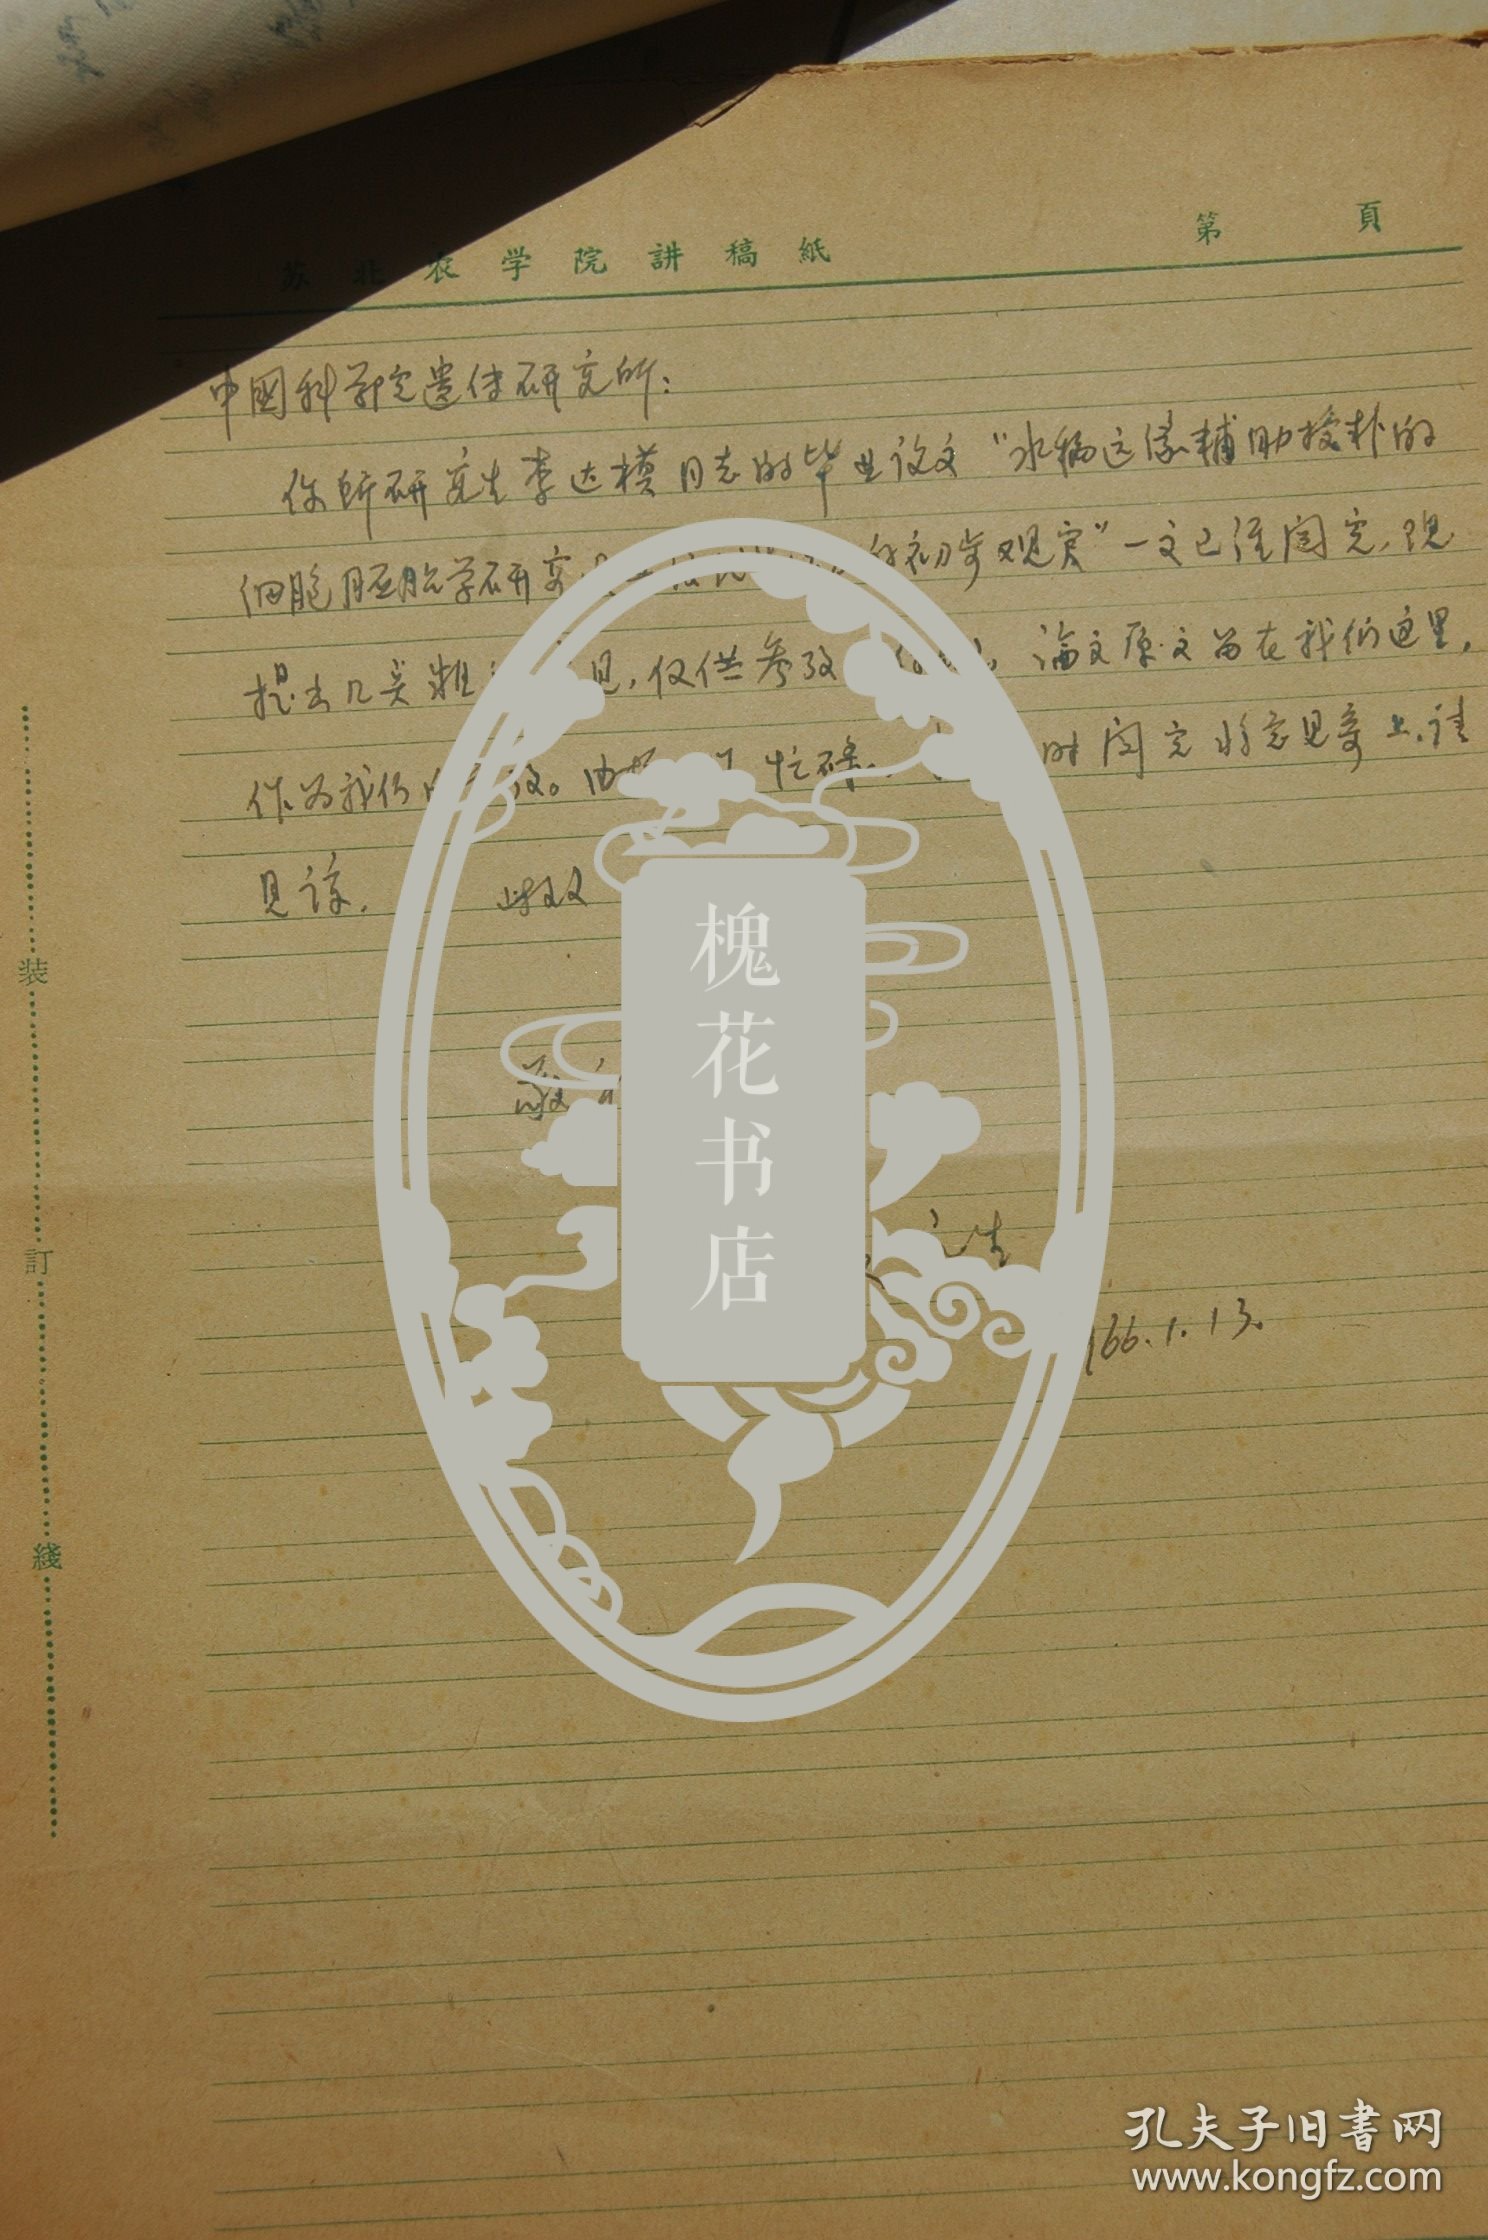 苏北农学院講稿紙
第 頁
中國科学院遗传研究所：
你所研究生李达模同志的毕业论文“水稻远缘辅助授粉的
细胞胚胎学研究 初步观察”一文已经阅完，现
提出几 粗 见，仅供参考 论文原文留在我们这里，
作为我们 忙碌， 时阅完将意见寄上，请
见谅。 此致
敬
生
166.1.13.
装
訂
綫
槐花书店
孔夫子旧書网
www.kongfz.com